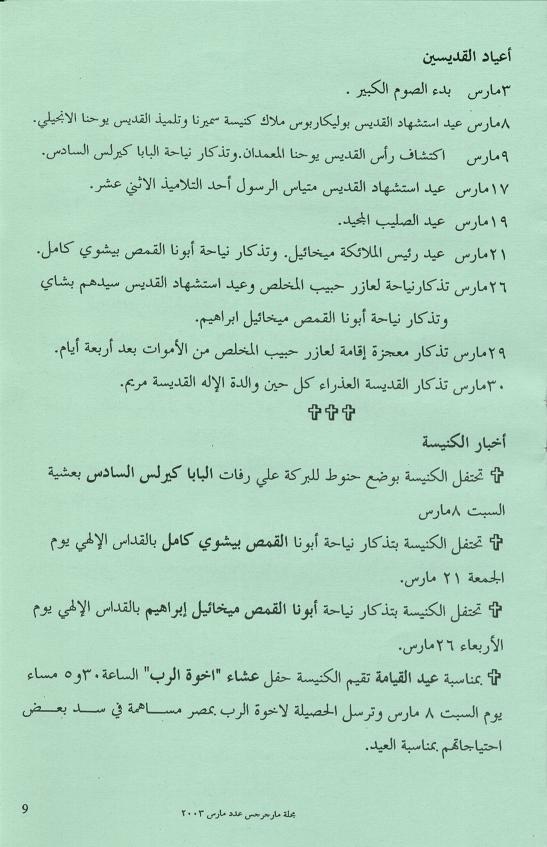 أعياد القديسين
٣مارس بدء الصوم الكبير .
٨مارس عيد استشهاد القديس بوليكاربوس ملاك كنيسة سميرنا وتلميذ القديس يوحنا الانجيلي.
٩مارس اكتشاف رأس القديس يوحنا المعمدان.وتذكار نياحة البابا كيرلس السادس.
١٧مارس عيد استشهاد القديس متياس الرسول أحد التلاميذ الاثني عشر.
١٩مارس عيد الصليب المجيد.
٢١مارس عيد رئيس الملائكة ميخائيل. وتذكار نياحة أبونا القمص بيشوي كامل.
٢٦مارس تذكارنياحة لعازر حبيب المخلص وعيد استشهاد القديس سيدهم بشاي
وتذكار نياحة أبونا القمص ميخائيل ابراهيم.
٢٩مارس تذكار معجزة إقامة لعازر حبيب المخلص من الأموات بعد أربعة أيام.
٣٠مارس تذكار القديسة العذراء كل حين والدة الإله القديسة مريم.
✞✞✞
أخبار الكنيسة
✞ تحتفل الكنيسة بوضع حنوط للبركة علي رفات البابا كيرلس السادس بعشية
السبت ٨مارس
✞ تحتفل الكنيسة بتذكار نياحة أبونا القمص بيشوي كامل بالقداس الإلهي يوم
الجمعة ٢١ مارس.
✞ تحتفل الكنيسة بتذكار نياحة أبونا القمص ميخائيل إبراهيم بالقداس الإلهي يوم
الأربعاء ٢٦مارس.
✞ بمناسبة عيد القيامة تقيم الكنيسة حفل عشاء "اخوة الرب" الساعة٣٠و٥ مساء
يوم السبت ٨ مارس وترسل الحصيلة لاخوة الرب بمصر مساهمة في سد بعض
احتياجاتهم بمناسبة العيد.
مجلة مارجرجس عدد مارس ٢٠٠٣
9